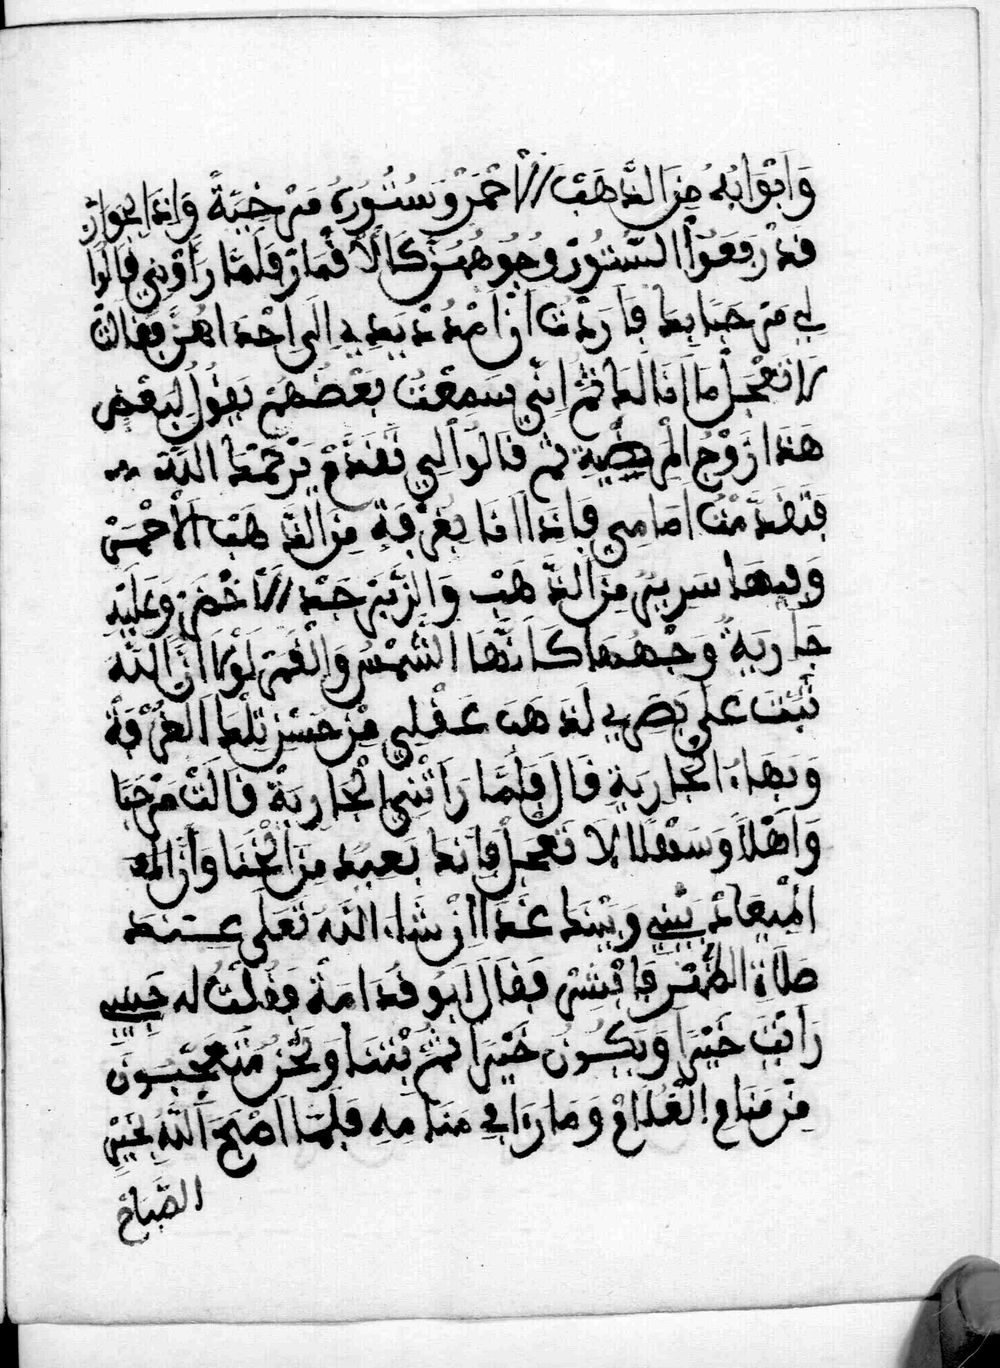 وَاَبْوَابُهُ مِنَ الذَّهَبْ الاَحْمَرْ وَسُتُورُهُ مَرْخِيَةً وَاِذَا بِجَوَارْ
قَدْ رَفَعُوا السُّتُورْ وُجُوهُهُنَّ كَالاَقْمَارْ فَلَمَّا رَأَوْنِي قَالُوا
لِي مَرْحَبَا بِكَ فَاَرَدْتُ اَنْ اَمُدَّ يَدِي اِلَى اِحْدَاهُنَّ فَقَالَتْ
لاَ تَعْجَلْ مَا اَنَا لَكَ ثُمَّ اِنِّي سَمِعْتُ بَعْضُهُمْ يَقُولُ لِبَعْضِ
هَذَا زَوْجُ الْمَرْضِيَّةِ ثُمَّ قَالُوا لِي تَقَدَّمْ يَرْحَمُكَ اللَّهُ
فَتَقَدَّمْتُ اَمَامِي فَاِذَا اَنَا بِغُرْفَةٍ مِنَ الذَّهَبْ الاَحْمَرْ
وَفِيهَا سَرِيرٌ مِنَ الذَّهَبْ وَالزَّبَرْجَدْ الاَخْضَرْ وَعَلَيْهِ
جَارِيَةٌ وَجْهُهَا كَاَنَّهَا الشَّمْسُ وَالْقَمَرْ لَوْلاَ اَنَّ اللَّهَ
ثَبَّتَ عَلَيَّ بَصَرِي لَذَهَبَ عَقْلِي مِنْ حُسْنِ تِلْكَ الْغُرْفَةْ
وَبَهَاءِ الْجَارِيَةِ قَالَ فَلَمَّا رَاَتْنِي الْجَارِيَةْ قَالَتْ مَرْحَبَا
وَاَهْلاً وَسَهْلاً لاَ تَعْجَلْ فَاِنَّكَ بَعِيد مِنَ الْخَنَا وَاَنَّ لَكَ
الْمِيعَادْ بَيْنِي وَبَيْنَكَ غَدًا اِنْ شَاءَ اللَّهُ تَعَلَى عِنْدَ
صَلاَةِ الظُّهْرِ فَابْشِرْ فَقَالَ اَبُو قُدَامَةْ فَقُلْتُ لَهُ حَبِيبِي
رَاَيْتَ خَيْرًا وَيَكُونُ خَيْرًا ثُمَّ بِتْنَا وَنَحْنُ مُتَعَجِّبُونَ
مِنْ مَنَامِ الْغُلاَمْ وَمَا رَءَا فِي مَنَامِهِ فَلَمَّا اَصْبَحَ اللَّهُ بِخَيْرِ
الصَّبَاحْ